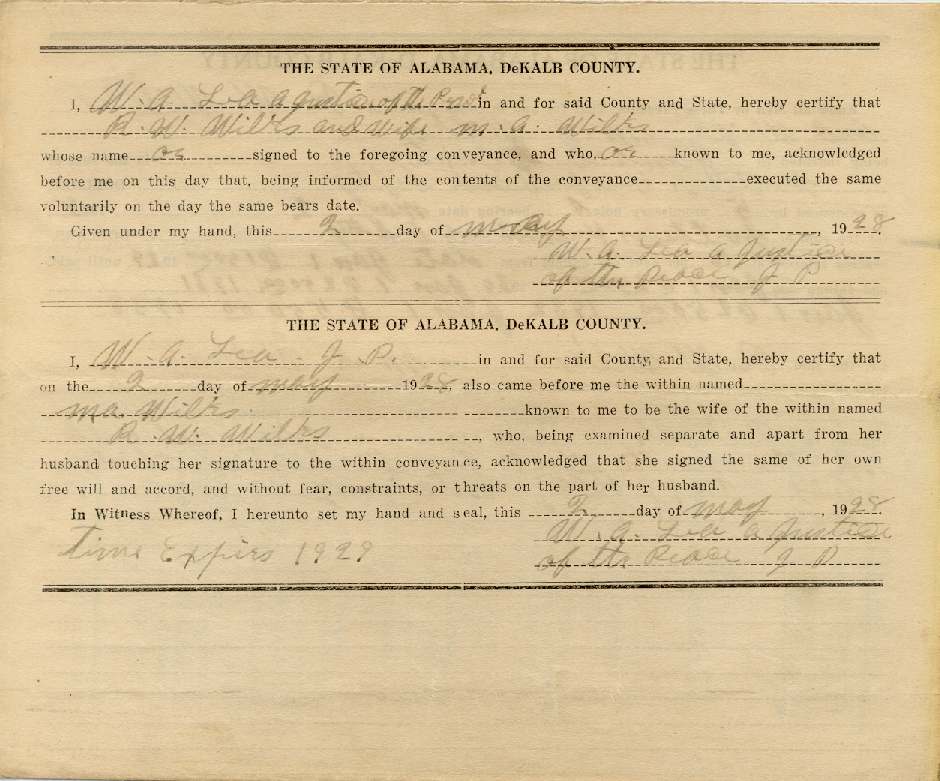 THE STATE OF ALABAMA, DeKALB COUNTY.
I, W. A. Lea a Justice of the Peace in and for said County and State, hereby certify that
R. W. Wilks and wife m. a. Wilks
whose name signed to the foregoing conveyance, and who, known to me, acknowledged
before me on this day that, being informed of the contents of the conveyance executed the same
voluntarily on the day the same bears date.
Given under my hand, this 2 day of may, 1928
W. A. Lea a Justice
of the Peace J P
THE STATE OF ALABAMA, DeKALB COUNTY.
I, W. A. Lea J P. in and for said County and State, hereby certify that
on the 2 day of may 1928, also came before me the within named
ma. Wilks known to me to be the wife of the within named
R. W. Wilks, who, being examined separate and apart from her
husband touching her signature to the within conveyance, acknowledged that she signed the same of her own
free will and accord, and without fear, constraints, or threats on the part of her husband.
In Witness Whereof, I hereunto set my hand and seal, this 2 day of may, 1928
W. A. Lea a Justice
time Expirs 1929
of the Peace J P